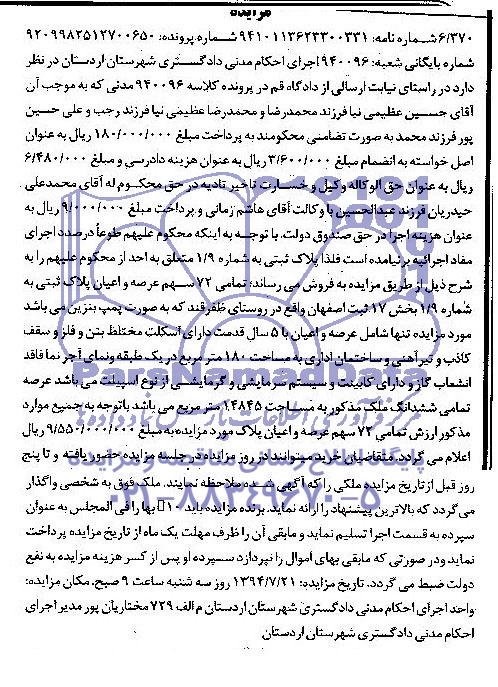 مزایده
۶/۳۷۰ شماره نامه: ۹۴۱۰۱۱۳۶۲۳۳۰۰۳۳۱ شماره پرونده: ۹۲۰۹۹۸۲۵۱۲۷۰۰۶۵۰
شماره بایگانی شعبه: ۹۴۰۰۹۶ اجرای احکام مدنی دادگستری شهرستان اردستان در نظر
دارد در راستای نیابت ارسالی از دادگاه قم در پرونده کلاسه ۹۴۰۰۹۶ مدنی که به موجب آن
آقای حسین عظیمی نیا فرزند محمدرضا و محمدرضا عظیمی نیا فرزند رجب و علی حسین
پور فرزند محمد به صورت تضامنی محکومند به پرداخت مبلغ ۱۸۰/۰۰۰/۰۰۰ ریال به عنوان
اصل خواسته به انضمام مبلغ ۳/۶۰۰/۰۰۰ ریال به عنوان هزینه دادرسی و مبلغ ۶/۴۸۰/۰۰۰
ریال به عنوان حق الوکاله وکیل و خسارت تاخیر تادیه در حق محکوم له آقای محمدعلی
حیدریان فرزند عبدالحسین با وکالت آقای هاشم زمانی و پرداخت مبلغ ۹/۰۰۰/۰۰۰ ریال به
عنوان هزینه اجرا در حق صندوق دولت. با توجه به اینکه محکوم علیهم طوعا درصدد اجرای
مفاد اجرائیه برنیامده است فلذا پلاک ثبتی به شماره ۱/۹ متعلق به احد از محکوم علیهم را به
شرح ذیل از طریق مزایده به فروش می رساند: تمامی ۷۲ سهم عرصه و اعیان پلاک ثبتی به
شماره ۱/۹ بخش ۱۷ ثبت اصفهان واقع در روستای ظفرقند که به صورت پمپ بنزین می باشد
مورد مزایده تنها شامل عرصه و اعیان با ۵ سال قدمت دارای اسکلت مختلط بتن و فلز و سقف
کاذب و تیرآهنی و ساختمان اداری به مساحت ۱۸۰ متر مربع در یک طبقه ونمای آجر نما فاقد
انشعاب گاز و دارای کابینت و سیستم سرمایشی و گرمایشی از نوع اسپیلت می باشد عرصه
تمامی ششدانگ ملک مذکور به مساحت ۱۴۸۴۵ متر مربع می باشد باتوجه به جمیع موارد
مذکور ارزش تمامی ۷۲ سهم عرصه و اعیان پلاک مورد مزایده به مبلغ ۹/۵۵۰/۰۰۰/۰۰۰ ریال
اعلام می گردد. متقاضیان خرید میتوانند در روز مزایده در جلسه مزایده حضور یافته و تا پنج
روز قبل از تاریخ مزایده ملکی را که آگهی شده ملاحظه نمایند. ملک فوق به شخصی واگذار
می گردد که بالاترین پیشنهاد را ارائه نماید. برنده مزایده باید ۱۰ بها را فی المجلس به عنوان
سپرده به قسمت اجرا تسلیم نماید و مابقی آن را ظرف مهلت یک ماه از تاریخ مزایده پرداخت
نماید ودر صورتی که مابقی بهای اموال را نپردازد سپرده او پس از کسر هزینه مزایده به نفع
دولت ضبط می گردد. تاریخ مزایده: ۱۳۹۴/۷/۲۱ روز سه شنبه ساعت ۹ صبح. مکان مزایده:
واحد اجرای احکام مدنی دادگستری شهرستان اردستان م الف ۷۲۹ مختاریان پور مدیر اجرای
احکام مدنی دادگستری شهرستان اردستان
ParsNamadData
۰۲۱-۸۸۳۴۹۶۷۰-۵